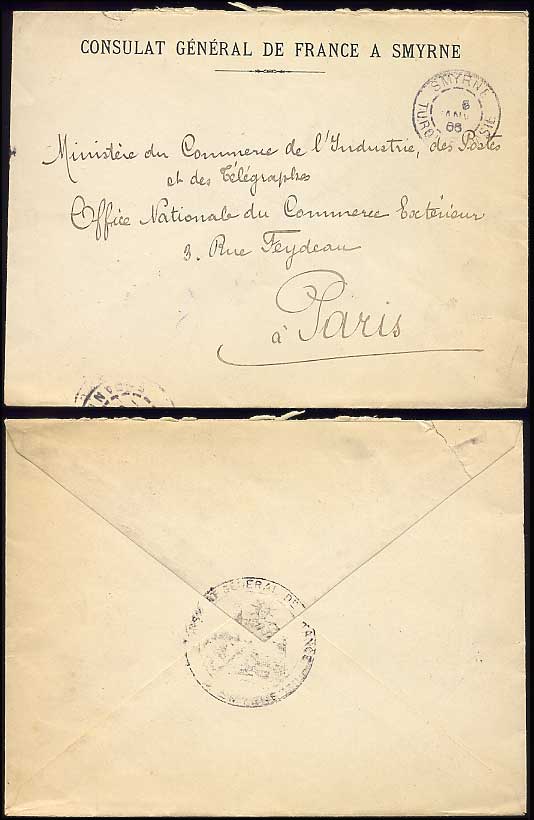 CONSULAT GÉNÉRAL DE FRANCE A SMYRNE
SMYRNE
TURQ. SIE
6
JANV
Ministère du Commerce de l'Industrie, des Postes
et des Télégraphes
Office Nationale du Commerce Extérieur
3. Rue Feydeau
à Paris
GÉNÉRAL DE